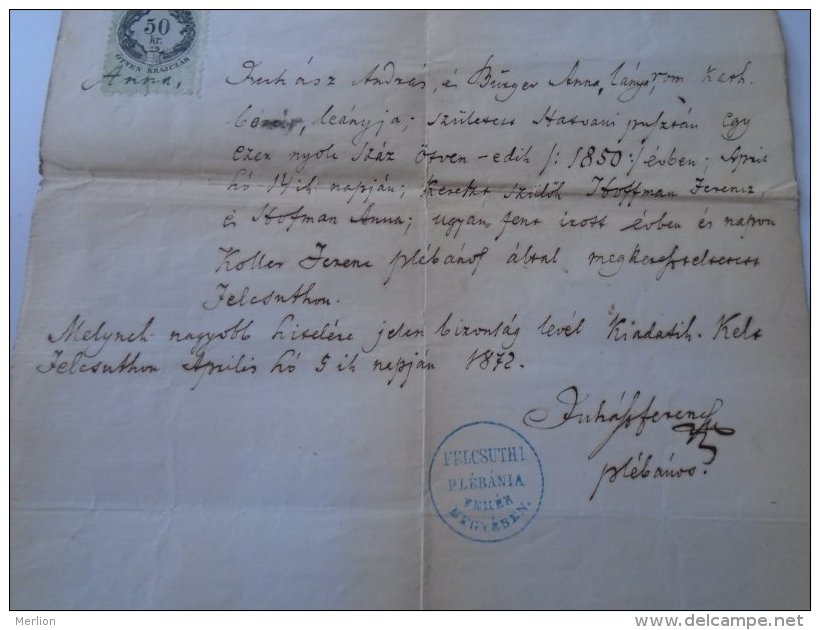 50
kr.
ÖTVEN KRAJCZÁR
Anna, Juhász András, és Bürger Anna, lánya, rom Kath.
leányja; születet Hatvani pusztán egy
ezer nyolc száz ötven-edik /: 1850 :/ évben; April
hó 14ik napján; Kereszt szülők Hoffman Ferencz,
és Hofman Anna; ugyan fent irott évben és napon
Koller Ferenc plébános által megkereszteltetett
Felcsuthon.
Melynek nagyobb hitelére jelen bizonság levél Kiadatik. Kelt
Felcsuthon Április hó 5ik napján 1872.
Juhász Ferencz
plébános.
FELCSUTHI
PLÉBÁNIA
FEHÉR
MEGYÉBEN.
Merlion
delcampe.net